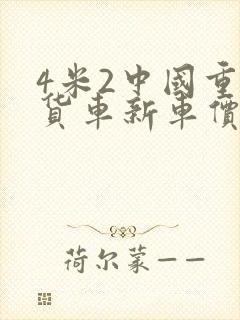 4米2中國重
货車新車價
荷尔蒙——